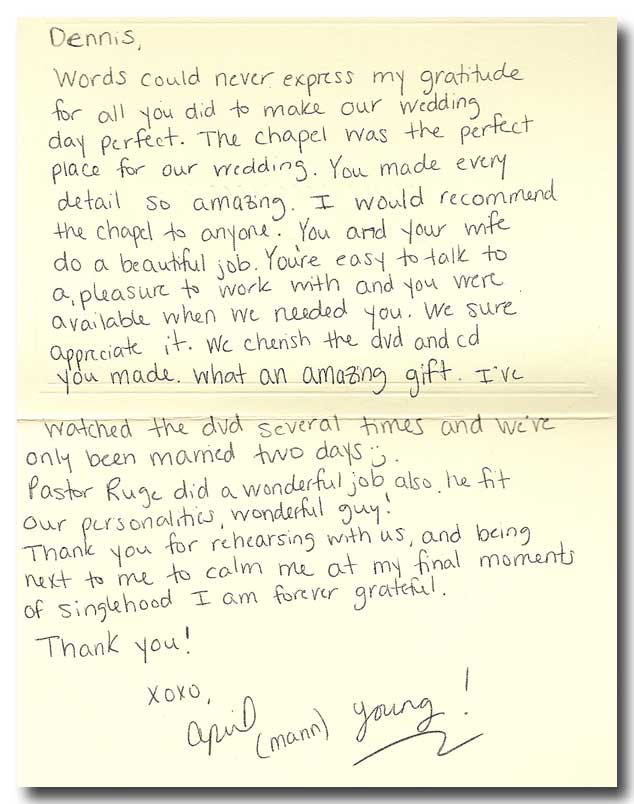 Dennis,
Words could never express my gratitude
for all you did to make our wedding
day perfect. The chapel was the perfect
place for our wedding. You made every
detail so amazing. I would recommend
the chapel to anyone. You and your wife
do a beautiful job. You're easy to talk to
a, pleasure to work with and you were
available when we needed you. We sure
appreciate it. We cherish the dvd and cd
you made. What an amazing gift. I've
watched the dvd several times and we've
only been married two days :).
Pastor Ruge did a wonderful job also. he fit
our personalities, wonderful guy!
Thank you for rehearsing with us, and being
next to me to calm me at my final moments
of singlehood I am forever grateful.
Thank you!
xoxo,
April (mann) Young!